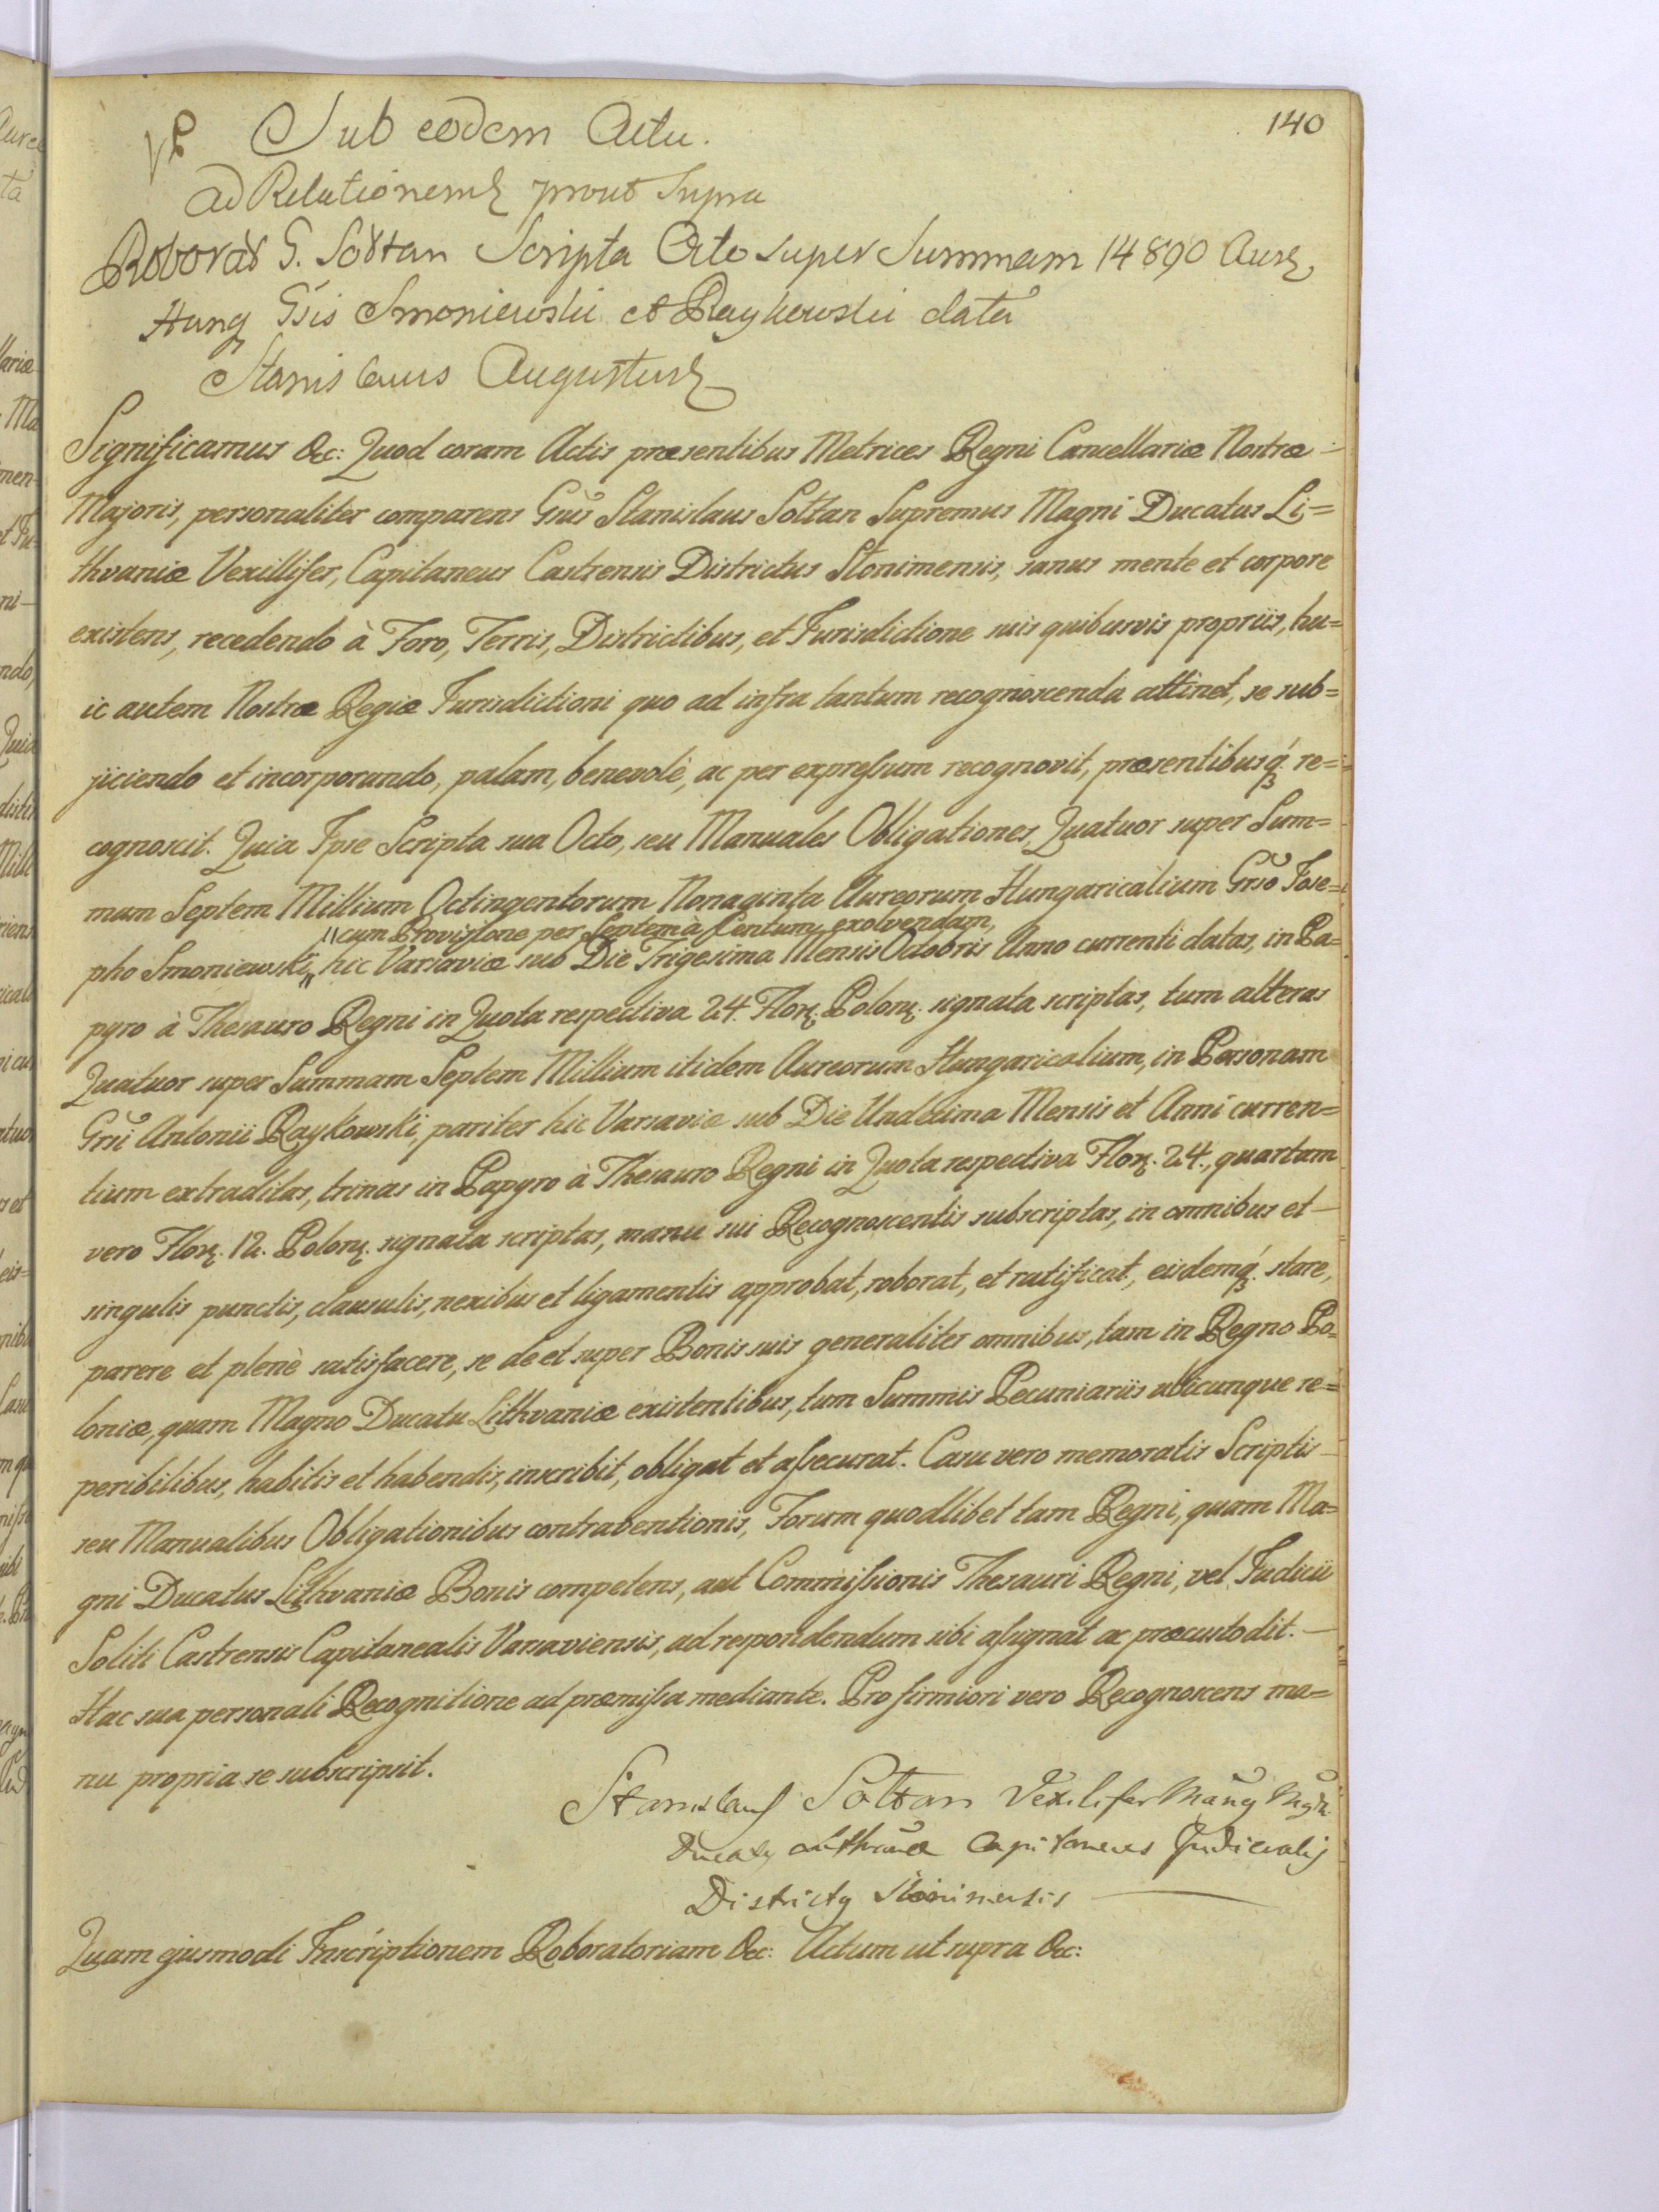 140
Sub eodem Actu.
ad Relationem prout Supra
Roborat G. Sołtan Scripta Octo super Summam 14890 Aur.
Hung Gsis Smoniewski et Raykowski data
Stanislaus Augustus
Significamus &c: Quod coram Actis præsentibus Metrices Regni Cancellariæ Nostræ
Majoris, personaliter comparens Gsus Stanislaus Sołtan Supremus Magni Ducatus Li=
thvaniæ Vexillifer, Capitaneus Castrensis Districtus Słonimensis, sanus mente et corpore
existens, recedendo à Foro, Terris, Districtibus, et Jurisdictione suis quibusvis propriis, hu=
ic autem Nostræ Regiæ Jurisdictioni quo ad infra tantum recognoscenda attinet, se sub=
jiciendo et incorporando, palam, benevolè, ac per expreſsum recognovit, præsentibusq́ꝫ re=
cognoscit. Quia Ipse Scripta sua Octo, seu Manuales Obligationes, Quatuor super Sum=
mam Septem Millium Octingentorum Nonaginta Aureorum Hungaricalium Grso Jose=
"cum Proviſione per Septem à Centum exolvendam,
pho Smoniewski," hic Varsaviæ sub Die Trigesima Mensis Octobris Anno currenti datas, in Pa=
pyro à Thesauro Regni in Quota respectiva 24. Flor. Polon. signata scriptas, tum alteras
Quatuor super Summam Septem Millium itidem Aureorum Hungaricalium, in Personam
Grsi Antonii Raykowski, pariter hic Varsaviæ sub Die Undecima Mensis et Anni curren=
tium extraditas, trinas in Papyro à Thesauro Regni in Quota respectiva Flor. 24., quartam
vero Flor. 12. Polon. signata scriptas, manu sui Recognoscentis subscriptas, in omnibus et
singulis punctis, clausulis, nexibus et ligamentis approbat, roborat, et ratificat, eisdemq́ꝫ stare,
parere et plenè satisfacere, se de et super Bonis suis generaliter omnibus, tam in Regno Po=
loniæ, quam Magno Ducatu Lithvaniæ existentibus, tum Summis Pecuniariis ubicunque re=
peribilibus, habitis et habendis, inscribit, obligat et aſsecurat. Casu vero memoratis Scriptis
seu Manualibus Obligationibus contraventionis, Forum quodlibet tam Regni, quam Ma=
gni Ducatus Lithvaniæ Bonis competens, aut Commiſsionis Thesauri Regni, vel Judicii
Soliti Castrensis Capitanealis Varsaviensis, ad respondendum sibi aſsignat ac præcustodit.
Hac sua personali Recognitione ad præmiſsa mediante. Pro firmiori vero Recognoscens ma=
nu propria se subscripsit.
Stanislaus Sołtan Vexilifer
Ducatus Lithvaniæ Capitaneus Judicialis
Districtus Słonimensis
Quam ejusmodi Inscriptionem Roboratoriam &c: Actum ut supra &c: